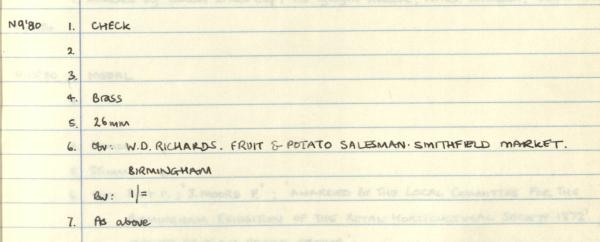 N9'80 1. CHECK
2.
3.
4. Brass
5. 26mm
6. Obv: W.D. RICHARDS. FRUIT & POTATO SALESMAN. SMITHFIELD MARKET.
BIRMINGHAM
Rv: 1/=
7. As above